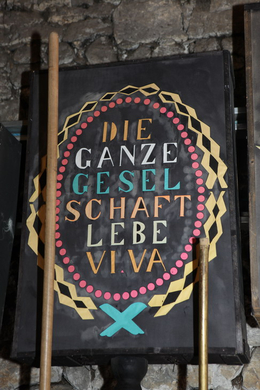 DIE
GANZE
GESEL
SCHAFT
LEBE
VI.VA